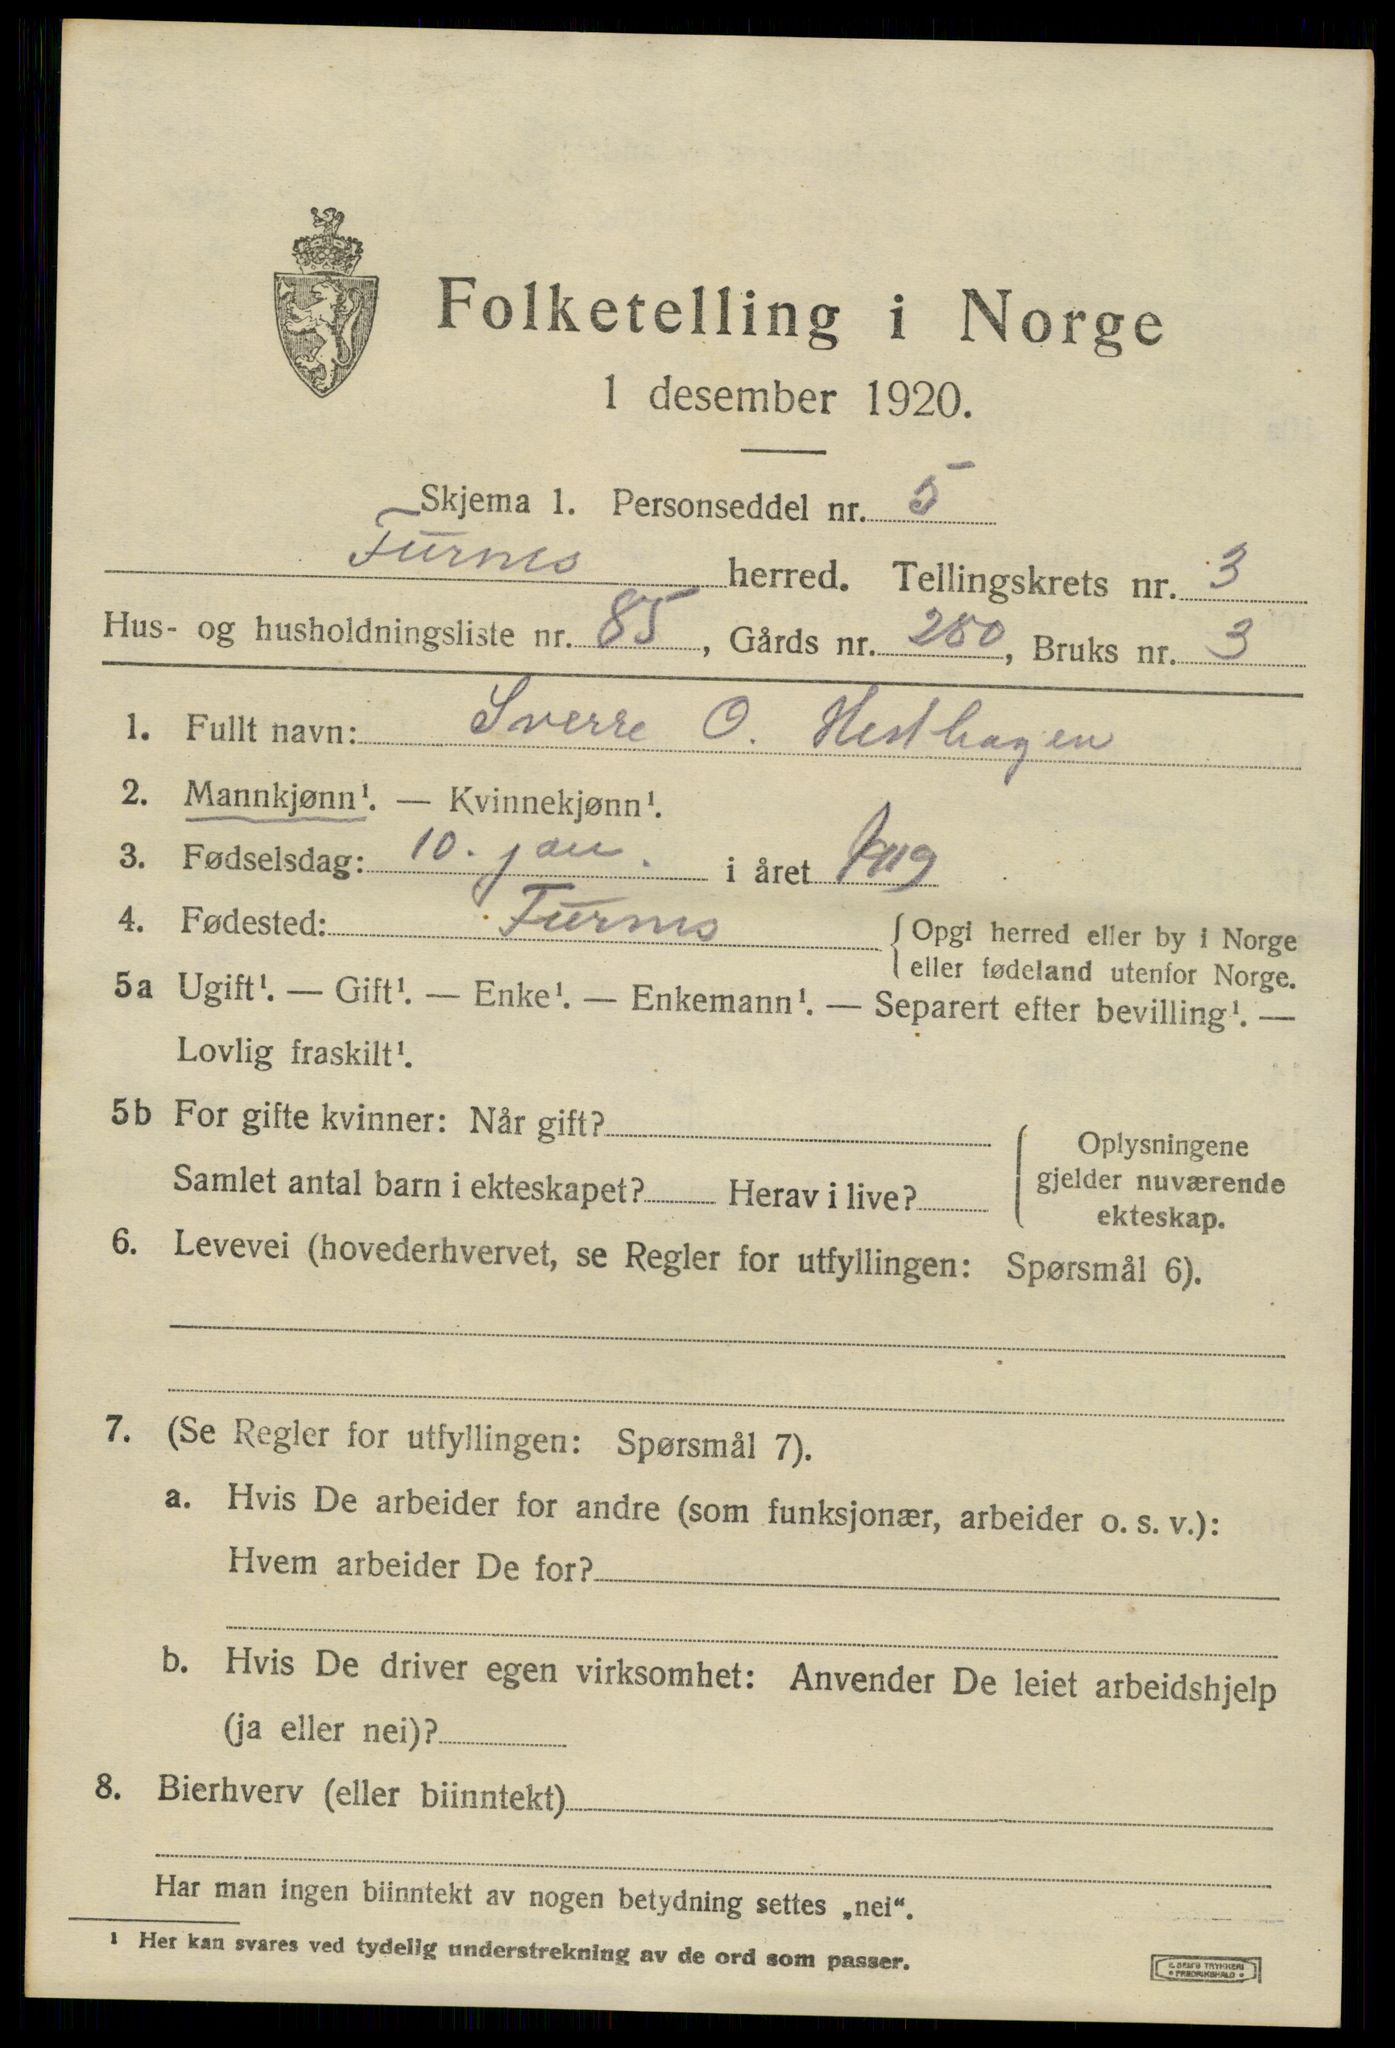 Folketelling i Norge
1 desember 1920.
Skjema 1. Personseddel nr. 5
Furnes herred. Tellingskrets nr. 3
Hus- og husholdningsliste nr. 85, Gårds nr. 250, Bruks nr. 3
1. Fullt navn: Sverre O. Hesthagen
2. Mannkjønn¹. — Kvinnekjønn¹.
3. Fødselsdag: 10. jan. i året 1919
4. Fødested: Furnes { Opgi herred eller by i Norge
eller fødeland utenfor Norge.
5a Ugift¹. — Gift¹. — Enke¹. — Enkemann¹. — Separert efter bevilling¹. —
Lovlig fraskilt¹.
5b For gifte kvinner: Når gift?
Samlet antal barn i ekteskapet? Herav i live?
Oplysningene
gjelder nuværende
ekteskap.
6. Levevei (hovederhvervet, se Regler for utfyllingen: Spørsmål 6).
7. (Se Regler for utfyllingen: Spørsmål 7).
a. Hvis De arbeider for andre (som funksjonær, arbeider o. s. v.):
Hvem arbeider De for?
b. Hvis De driver egen virksomhet: Anvender De leiet arbeidshjelp
(ja eller nei)?
8. Bierhverv (eller biinntekt)
Har man ingen biinntekt av nogen betydning settes „nei“.
¹ Her kan svares ved tydelig understrekning av de ord som passer.
E. SEM'S TRYKKERI
• FREDRIKSHALD •